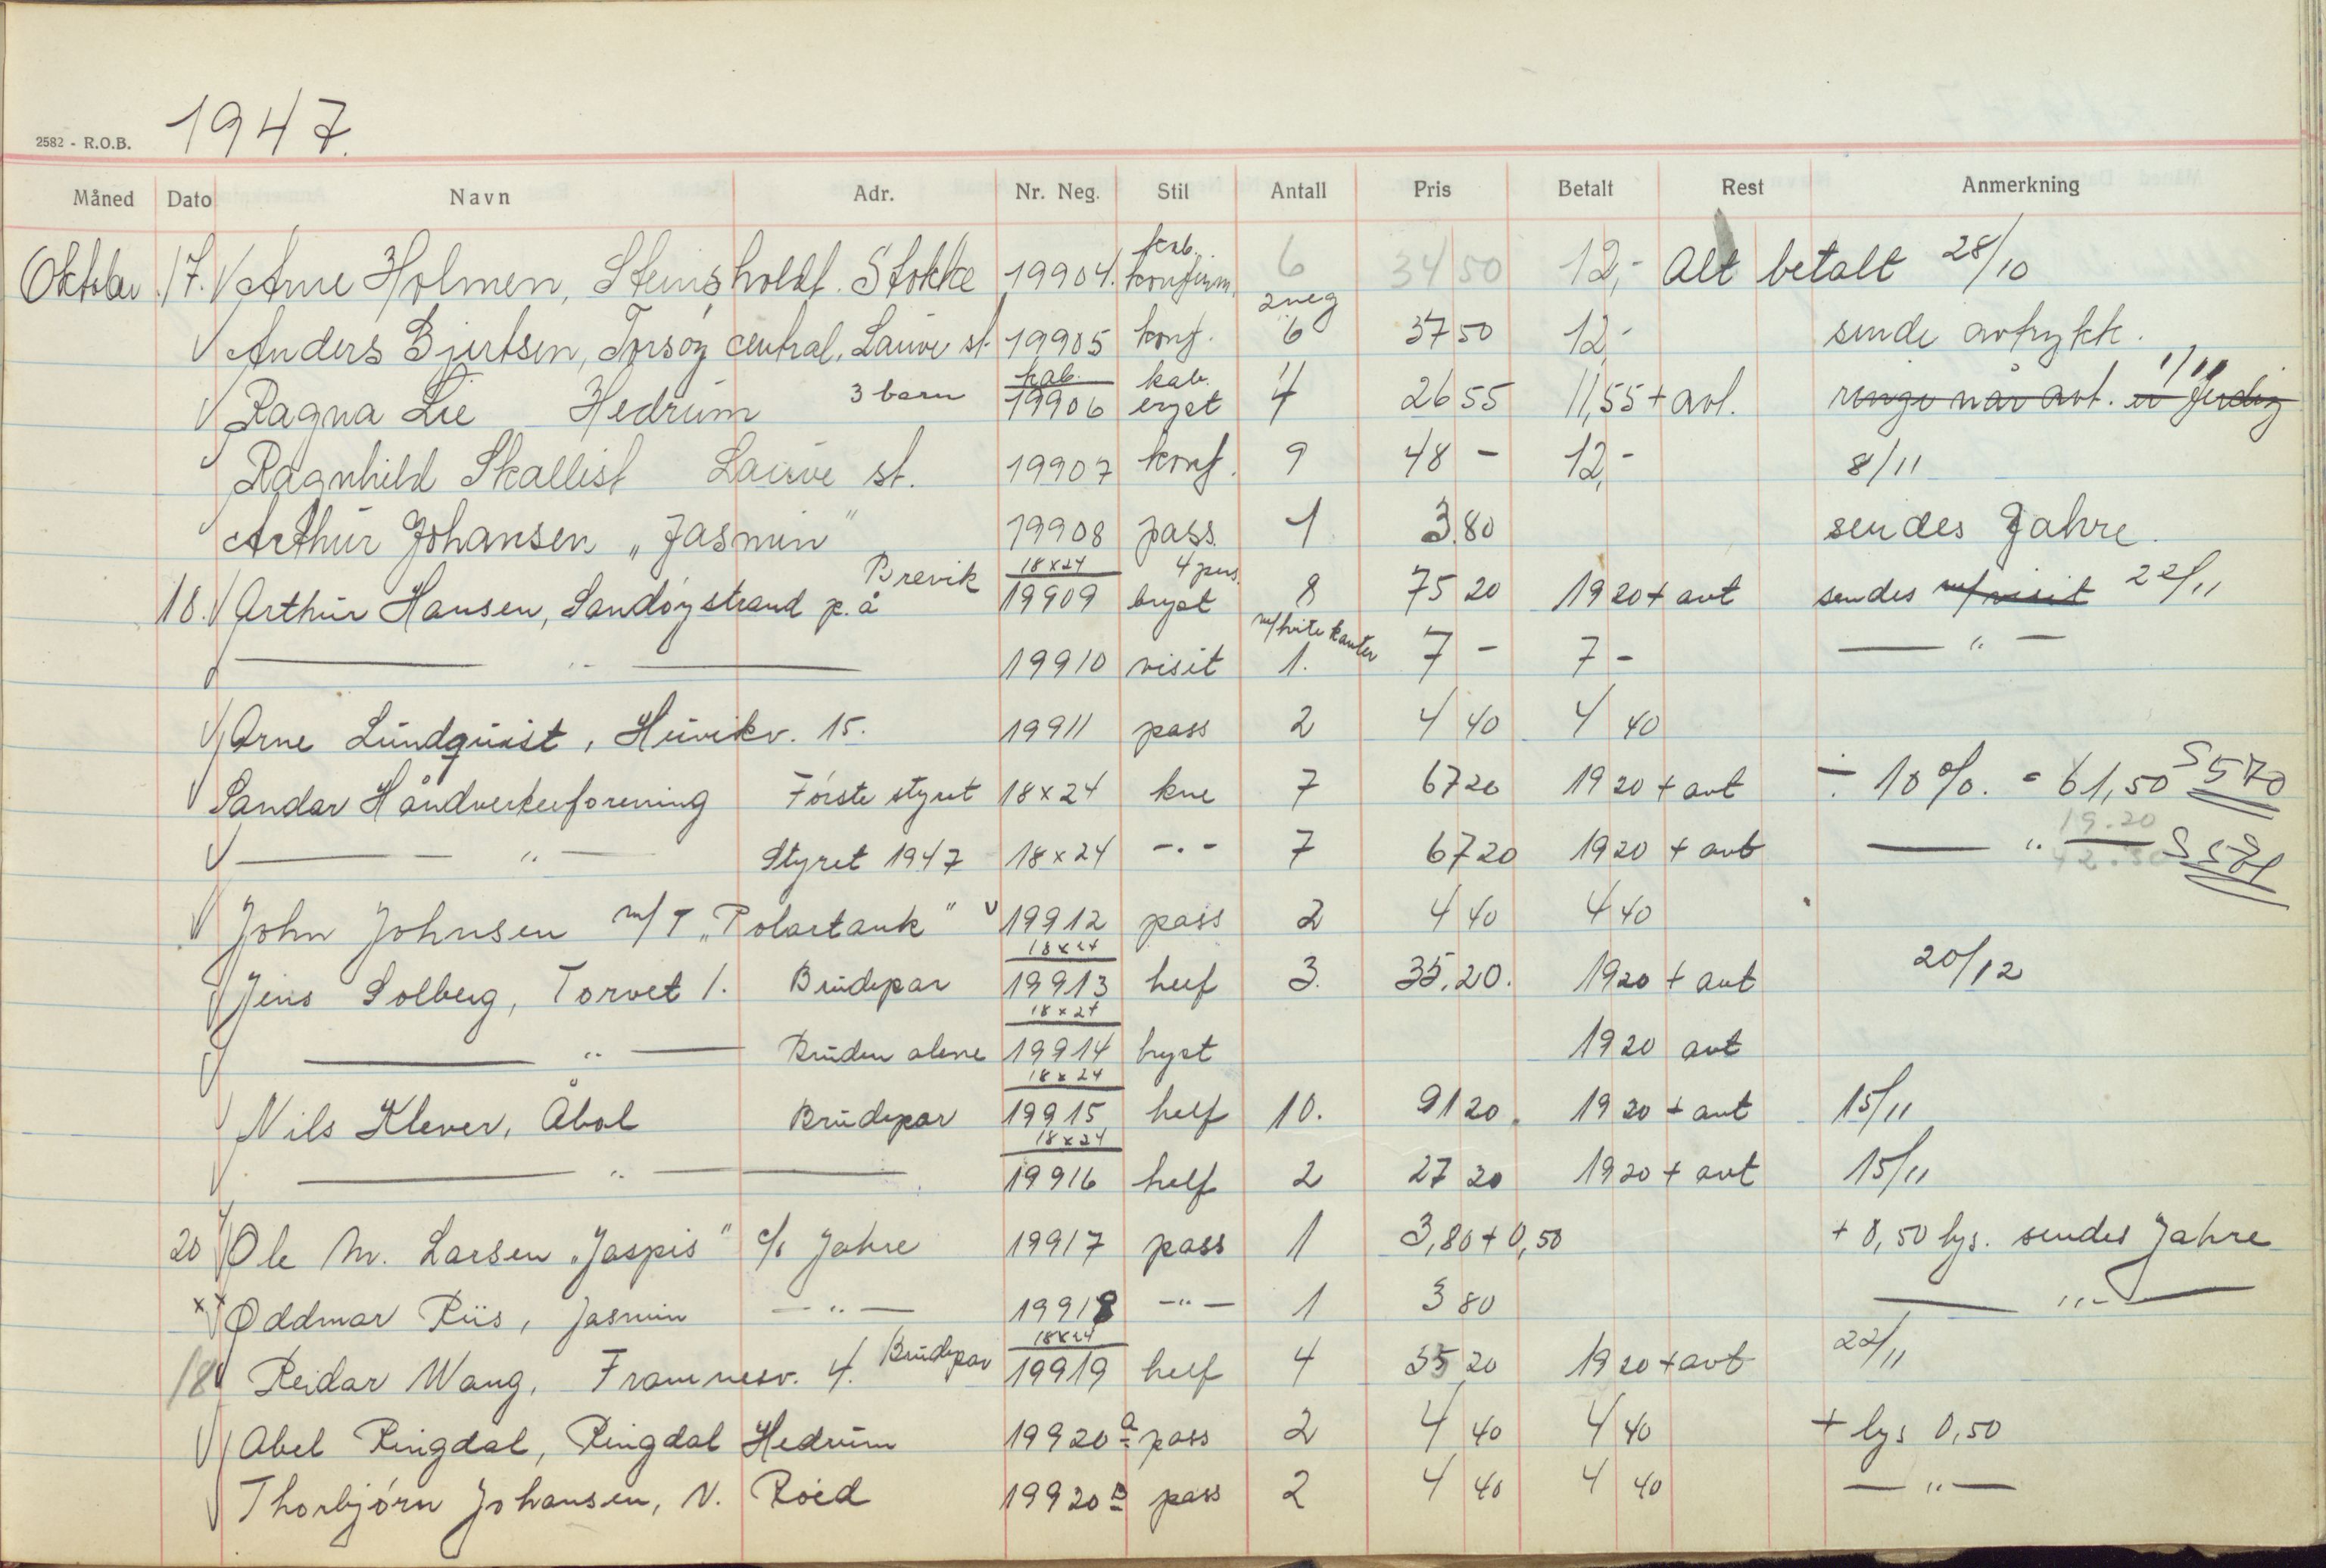 1947.
2582 - R.O.B.
Måned Dato Navn Adr. Nr. Neg. Stil Antall Pris Betalt Rest Anmerkning
Oktober 17. Arne Holmen, Steinsholdt. Stokke 19904. kab. konfirm. 6 34 50 12,- Alt betalt 28/10
Anders Bjertsen, Torsöy central, Lauve st. 19905 konf. 2 neg 6 37 50 12,- sende avtrykk.
Ragna Lie Hedrum 3 barn kab. 19906 kab. bryst 4 26 55 11,55 + avt. ringe når avt. er ferdig 1/11
Ragnhild Skallist Lauve st. 19907 konf. 9 48 - 12,- 8/11
Arthur Johansen „Jasmin" 19908 pass. 1 3.80 sendes Jahre.
18. Arthur Hansen, Sandöystrand p. å Brevik 18x24 19909 4 pers. bryst 8 75 20 19 20 + avt sendes m/visit 22/11
— " — 19910 visit m/hvite kanter 1. 7 - 7 - — " —
Arne Lundquist, Huvikv. 15. 19911 pass 2 4 40 4 40
Sandar Håndverkerforening Förste styret 18x24 kne 7 67 20 19 20 + avt ÷ 10%. = 61,50 S 570
19.20
— " — Styret 1947 18x24 -.- 7 67 20 19 20 + avt — " — S 571
42.30
John Johnsen m/T „Polartank" 19912 pass 2 4 40 4 40
Jens Solberg, Torvet 1. Brudepar 18x24 19913 helf 3. 35.20. 19 20 + avt 20/12
— " — Bruden alene 18x24 19914 bryst 19 20 avt
Nils Klever, Åbol Brudepar 18x24 19915 helf 10. 91 20. 19 20 + avt 15/11
— " — 18x24 19916 helf 2 27 20 19 20 + avt 15/11
20 Ole M. Larsen „Jaspis" c/o Jahre 19917 pass 1 3,80 + 0,50 + 0,50 lys. sendes Jahre
x x Oddmar Riis, Jasmin — " — 19918 — " — 1 3 80 — " —
18 Reidar Wang, Framnesv. 4. Brudepar 18x24 19919 helf 4 35 20 19 20 + avt 22/11
Abel Ringdal, Ringdal Hedrum 19920 a pass 2 4 40 4 40 + lys 0,50
Thorbjörn Johansen, N. Röed 19920 B pass 2 4 40 4 40 — " —